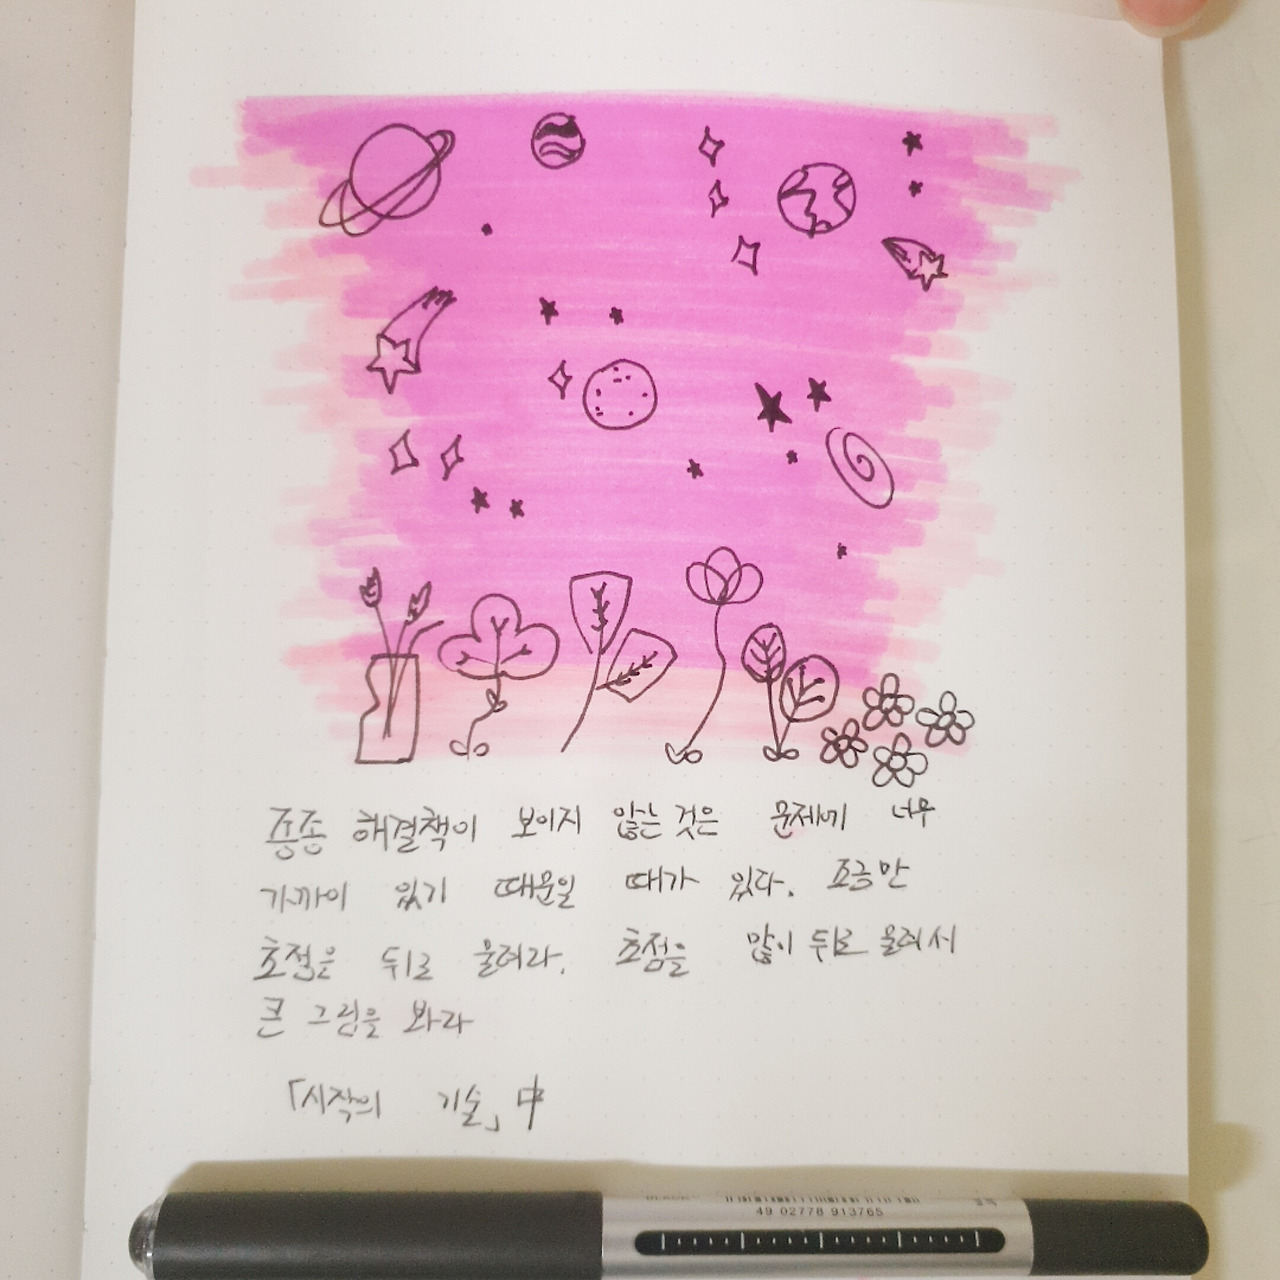 종종 해결책이 보이지 않는 것은 문제에 너무
가까이 있기 때문일 때가 있다. 조금만
초점은 뒤로 옮겨라. 초점을 많이 뒤로 옮겨서
큰 그림을 봐라
「시작의 기술」中
49 02778 913765